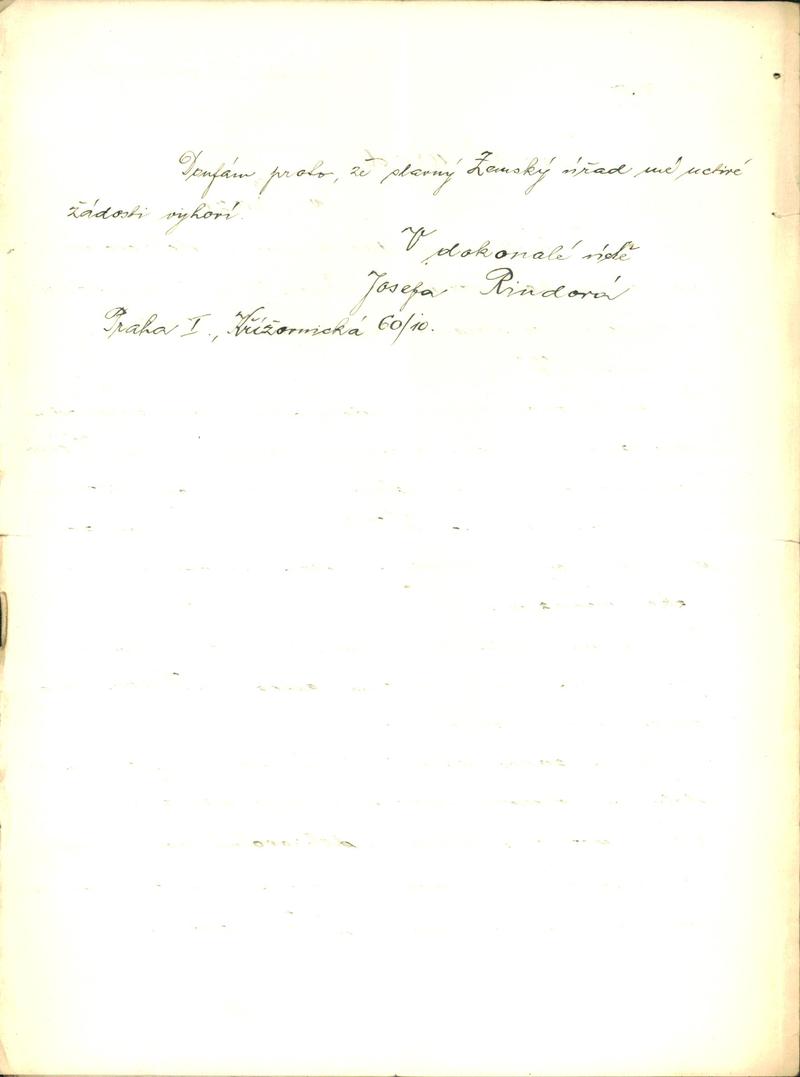 Doufám proto, že slavný Zemský úřad mé uctivé
žádosti vyhoví.
V dokonalé úctě
Josefa Rindová
Praha I., Křížovnická 60/10.